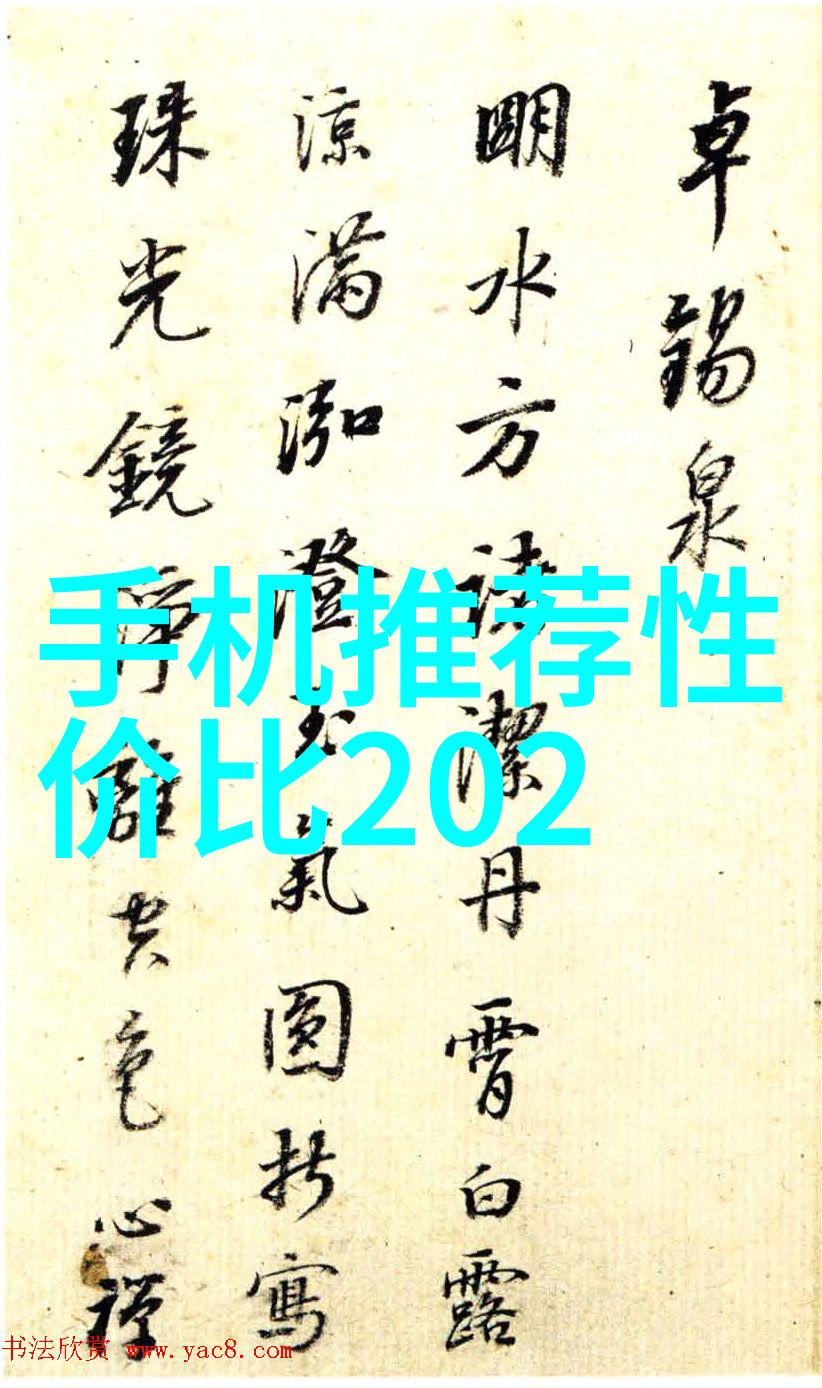 卓錫泉
明水方諸潔丹霄白露
涼滿泓澄玉氣圓折寫
珠光鏡淨離空色心禪
手机推荐性
价比202
书法欣赏 www.yac8.com